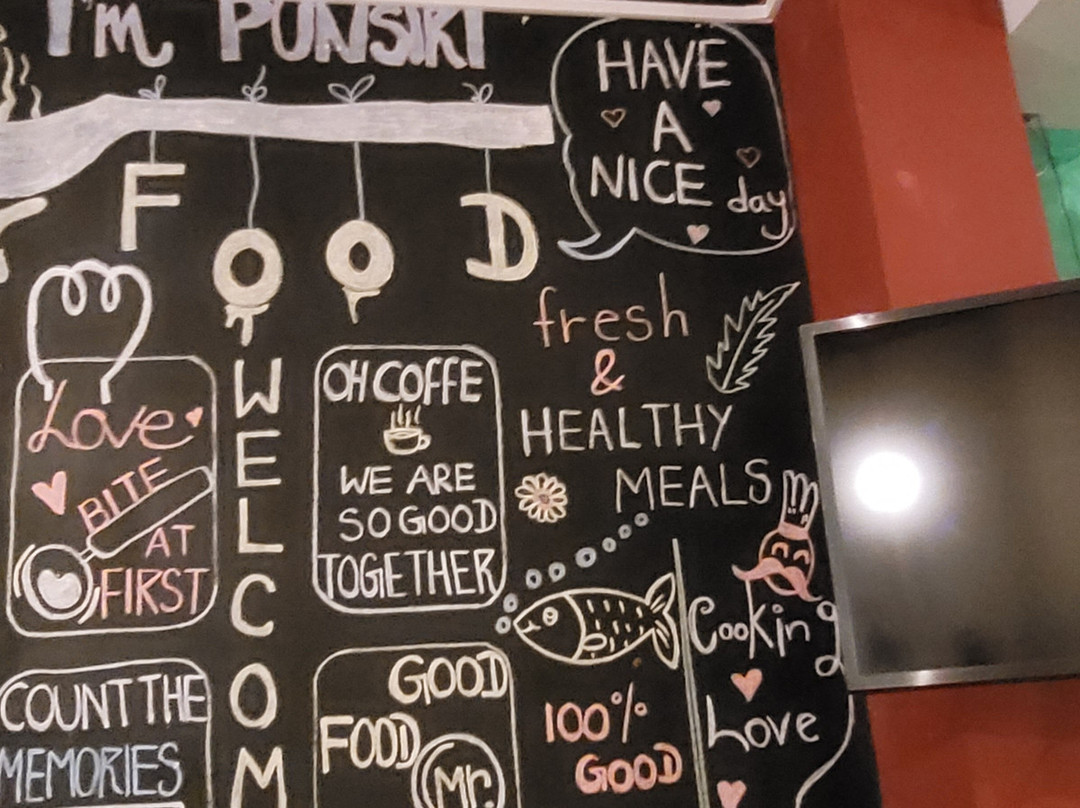 I'm PUNSIRI
HAVE
A
NICE day
F O O D
fresh
&
HEALTHY
MEALS
Love
BITE
AT
FIRST
WELCOM
OH COFFE
WE ARE
SO GOOD
TOGETHER
Cooking
Love
COUNT THE
MEMORIES
GOOD
FOOD
Mr.
100%
GOOD